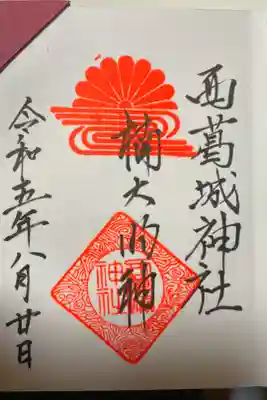 西葛城神社
楠大明神
令和五年八月廿日